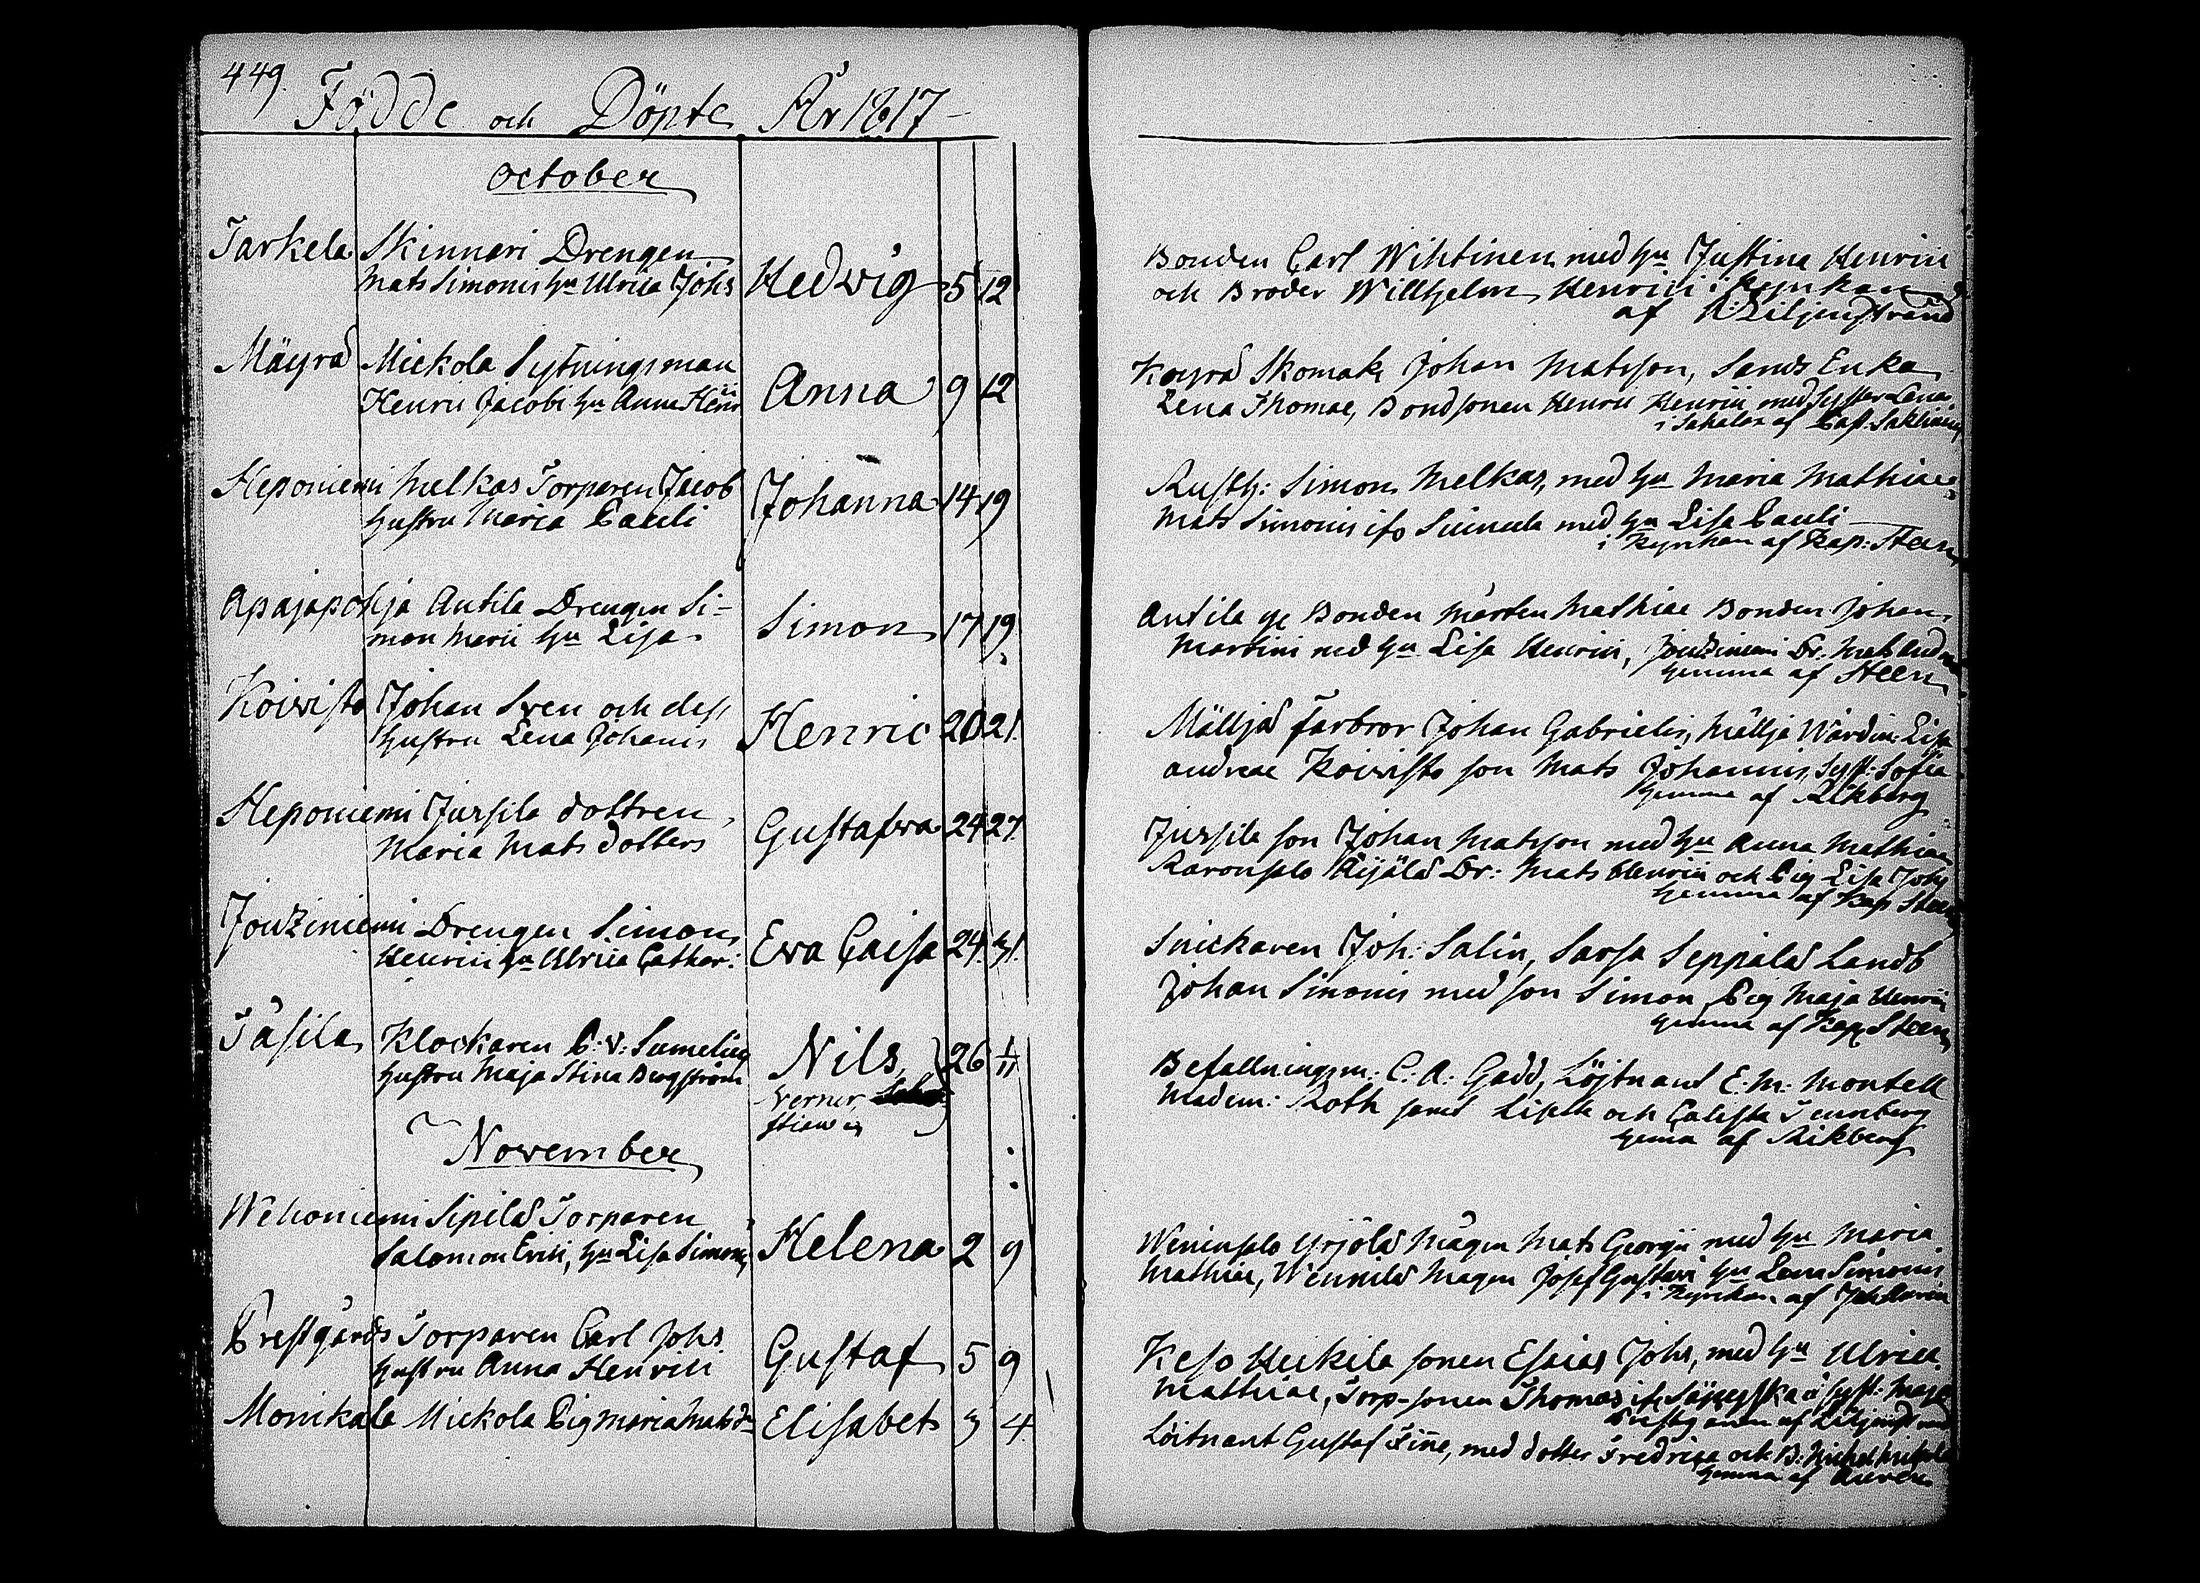 449.
Födde och Döpte År 1817
October
Tarkela Skinnari Drengen
Mats Simonis hu Ulrica Johs Hedwig 5 12
Mäyrä Mickola Sytningsman
Henric Jacobi hu Anna Henr Anna 9 12
Heponiemi Melkas Torparen Jacob
hustru Maria Pauli Johanna 14 19
Apajapohja Antila Drengen Si-
mon Marii hu Lisa Simon 17 19
Koivisto Johan Sven och dess
hustru Lena Johanis Henric 20 21
Heponiemi Jussila dottren
Maria Mats dotters Gustafva 24 27
Jouziniemi Drengen Simon
Henrici hu Ulrica Cathar: Eva Caisa 24 31
Tåsila Klockaren C. V. Sumelius
hustru Maja Stina Bergström Nils 26 1/11
Verner
November
Wehoniemi Sipilä Torparen
Salomon Erici, hu Lisa Simonis Helena 2 9
Prestgårds Torparen Carl Johs
hustru Anna Henrici Gustaf 5 9
Monikala Mickola Pig Maria Matsdr Elisabet 3 4
Bonden Carl Wihtinen med hu Justina Henrici
och Broder Willhelm Henrici i Kyrkan
af Liljenstrand
Skomak Johan Matsson, Enka
Lena Thomae, Bondsonen Henric Henrici med Syster Lena
i Sahalax af
Rusth: Simon Melkas, med hu Maria Mathiae
Mats Simonis ifr Suinula med hu Lisa Pauli
i Kyrkan af Kap: Steen
Antila ge Bonden Mårten Mathiae Bonden Johan
Martini med hu Lisa Henrici, Jouziniemi Dr:
hemma af Steen
Mälljä Farbror Johan Gabrielis, Mällja Wärdin Lisa
Andreae Koivisto son Mats Johannis, Syst: Sofia
hemma af Rikberg
Jussila son Johan Matsson med hu Anna Mathiae
Dr: Mats Henrici och Pig Lisa Joh
hemma af Kap Steen
Snickaren Joh: Salin, Sarsa Seppälä Landb
Johan Simonis med son Simon Pig Maja Henrici
hemma af Kap Steen
Befallningsm: C: A: Gadd, Löjtnant E. M: Montell
Madem: Roth samt och
hemma af Rikberg
Weninsalo Yrjölä Mågen Mats Georgii med hu Maria
Mathiae, Wennilä Mågen Josef Gustavi hu Lena Simonis
i Kyrkan af
Keso Heikila sonen Esaias Johs, med hu Ulrica
Mathiae, Torp-sonen Thomas Syst: Maja
af
Löitnant Gustaf med dotter Fredrica och B:
hemma af